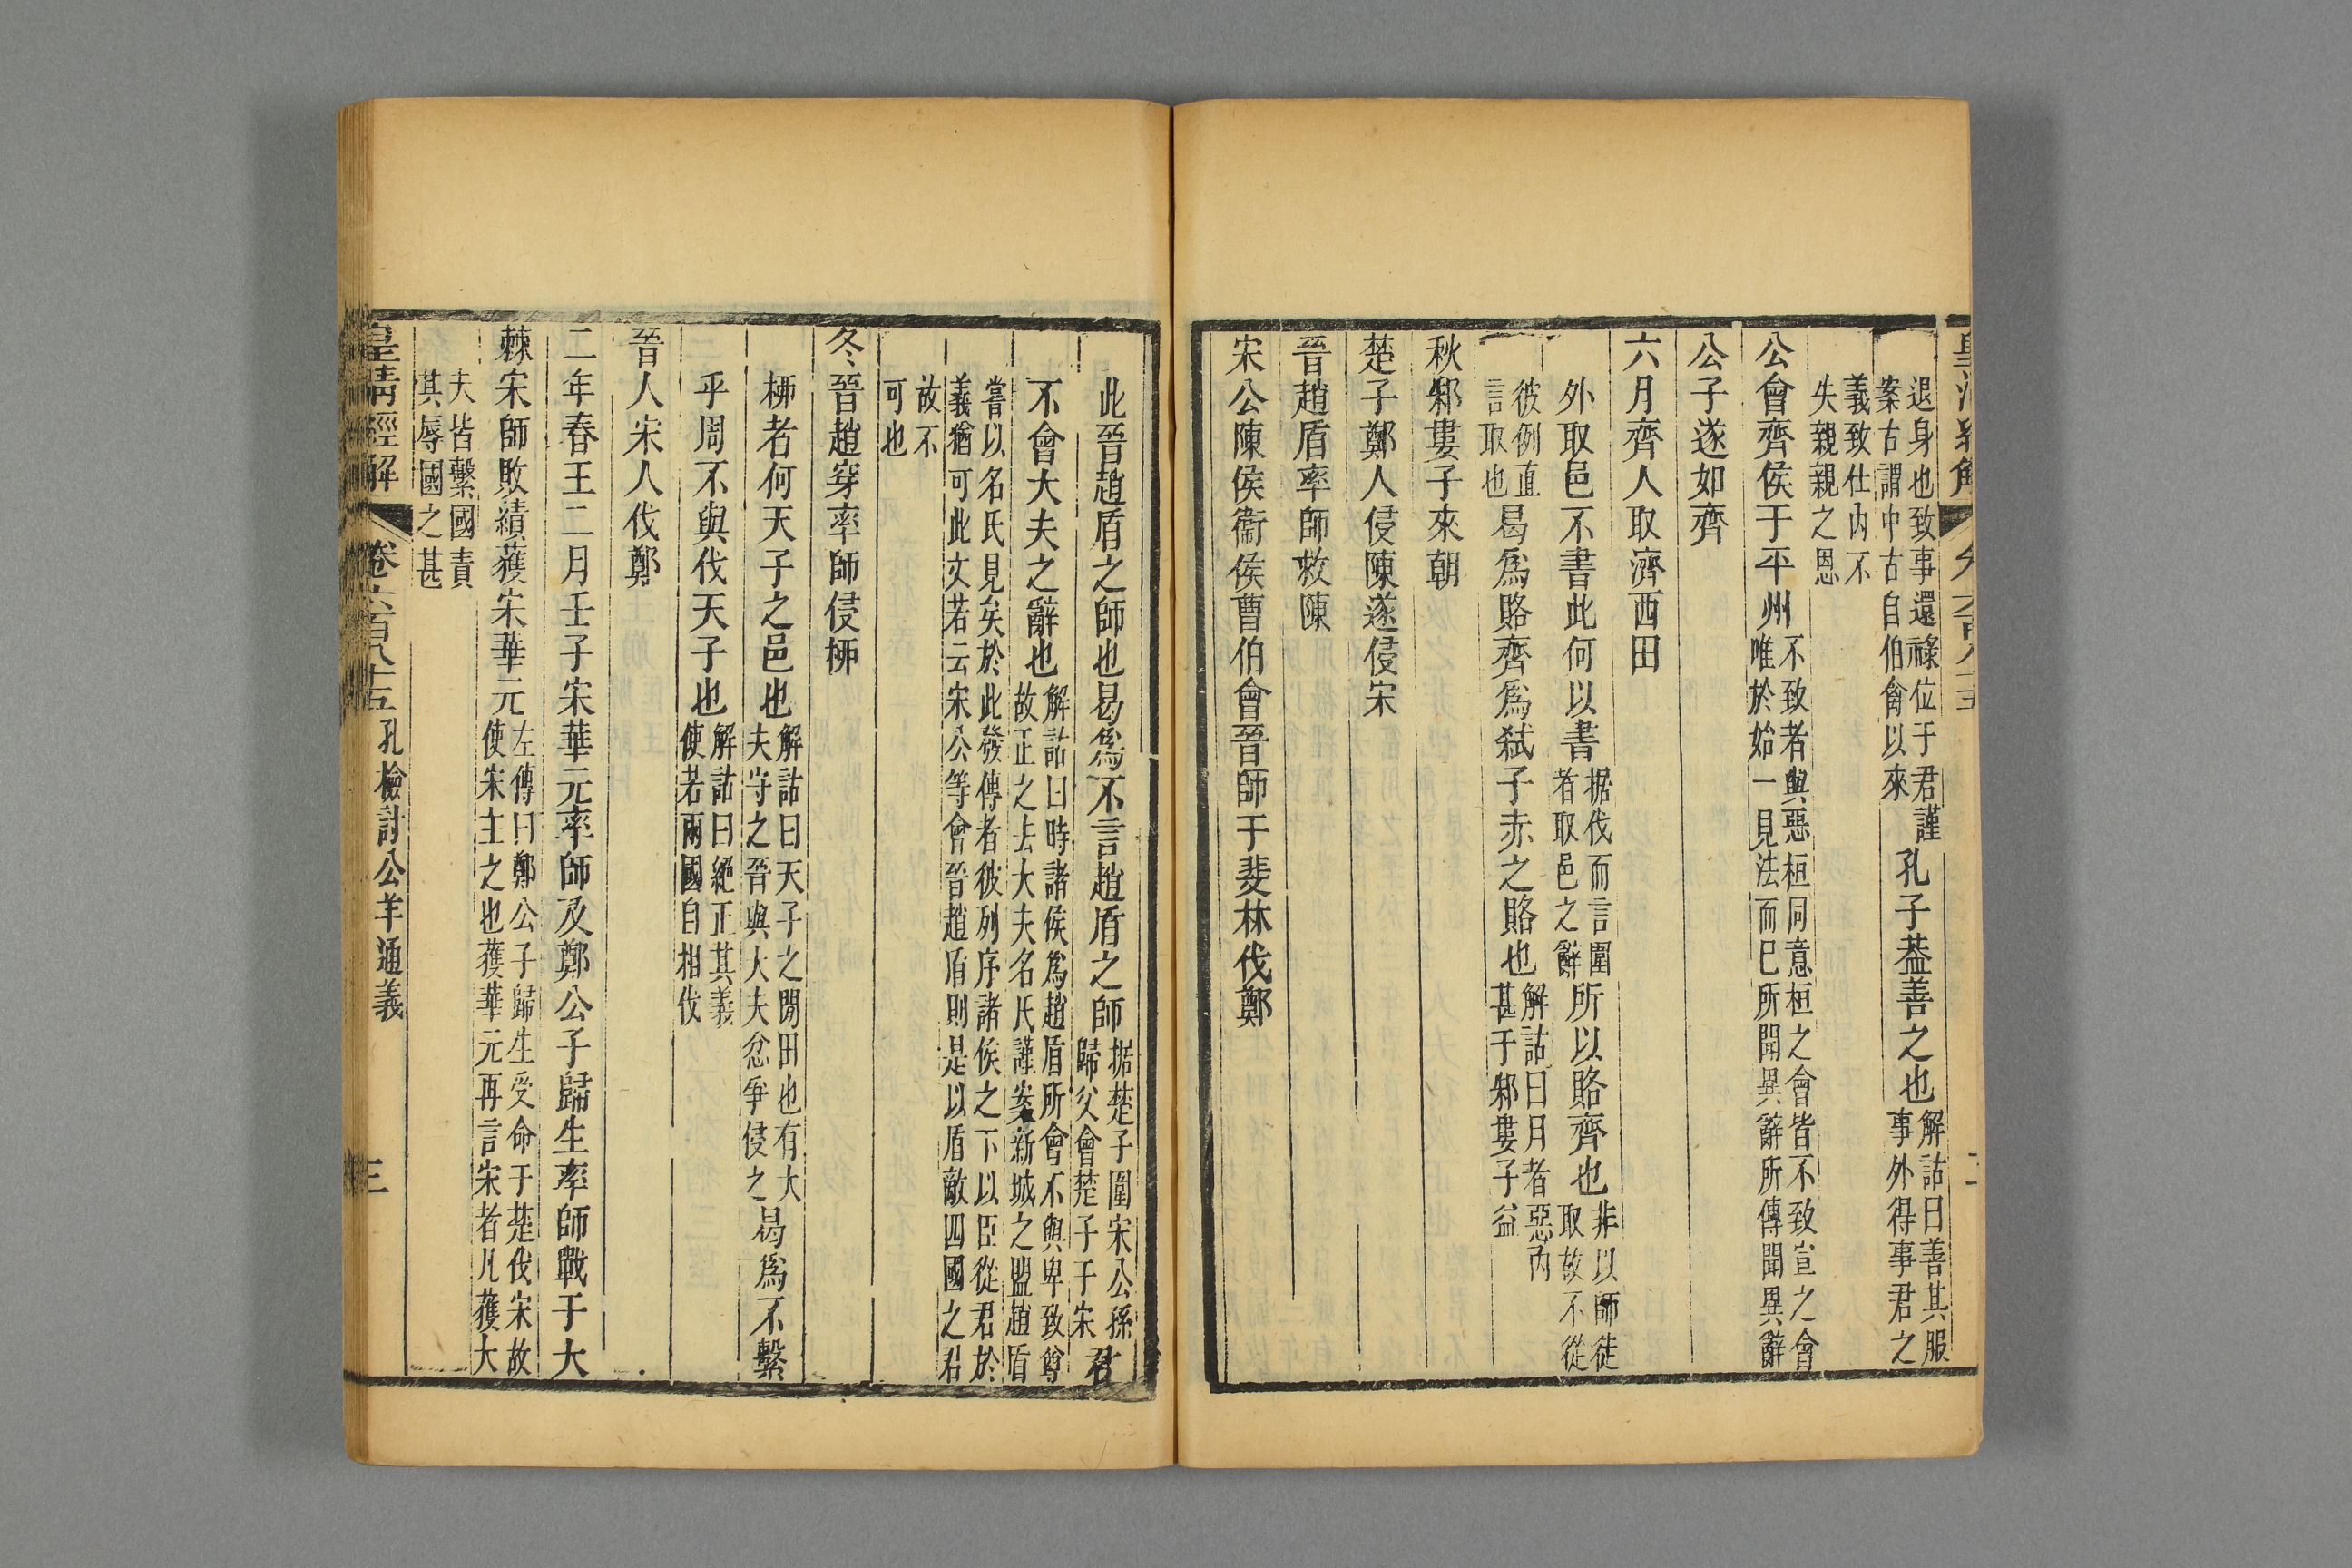 退身也致事還祿位于君謹案古謂中古自伯禽以來孔子葢善之也解詁曰善其服事外得事君之
義致仕內不失親親之恩
公會齊侯于平州不致者與惡桓同意桓之會皆不致宣之會唯於始一見法而已所聞異辭所傳聞異辭
公子遂如齊
六月齊人取濟西田
外取邑不書此何以書据伐而言圍者取邑之辭所以賂齊也非以師徒取故不從
彼例直言取也曷爲賂齊爲弑子赤之賂也解詁曰月者惡內甚于邾婁子益
秋邾婁子來朝
楚子鄭人侵陳遂侵宋
晉趙盾率師救陳
宋公陳侯衞侯曹伯會晉師于斐林伐鄭
此晉趙盾之師也曷爲不言趙盾之師据楚子圍宋公孫歸父會楚子于宋君
不會大夫之辭也解詁曰時諸侯爲趙盾所會不與卑致尊故正之去大夫名氏謹案新城之盟趙盾
嘗以名氏見矣於此發傳者彼列序諸侯之下以臣從君於義猶可此文若云宋公等會晉趙盾則是以盾敵四國之君
故不可也
冬晉趙穿率師侵柳
柳者何天子之邑也解詁曰天子之閒田也有大夫守之晉與大夫忿爭侵之曷爲不繫
乎周不與伐天子也解詁曰絕正其義使若兩國自相伐
晉人宋人伐鄭
二年春王二月壬子宋華元率師及鄭公子歸生率師戰于大
棘宋師敗績獲宋華元左傳曰鄭公子歸生受命于楚伐宋故使宋主之也獲華元再言宋者凡獲大
夫皆繫國責其辱國之甚
皇清經解 卷六百八十五 孔檢討公羊通義 三